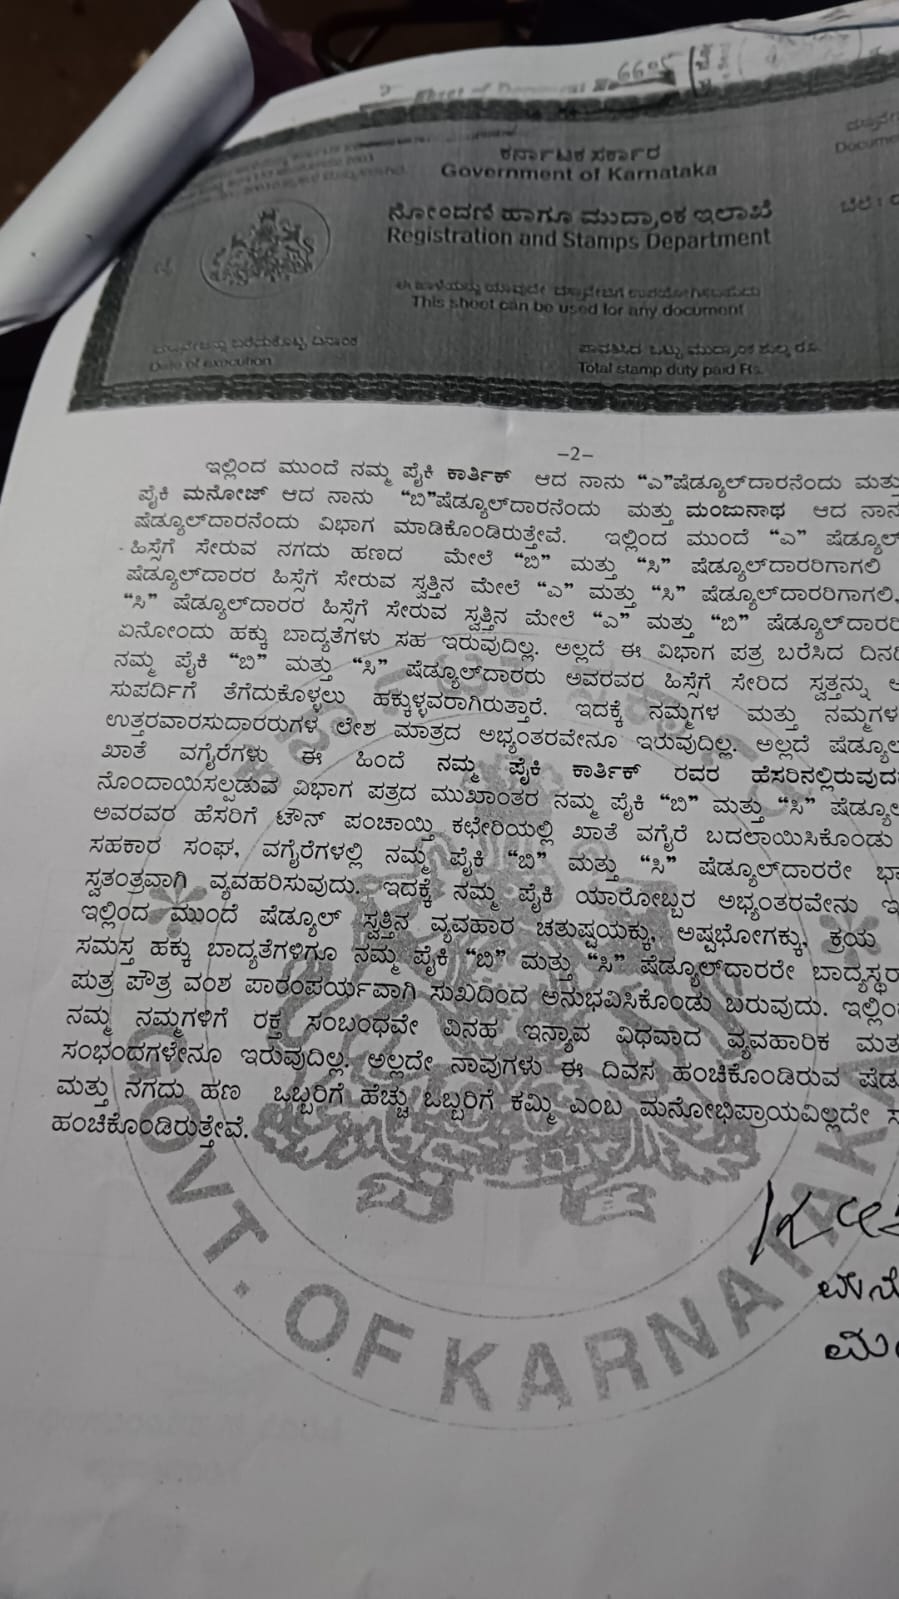 6605
ಕರ್ನಾಟಕ ಸರ್ಕಾರ
Government of Karnataka
ನೋಂದಣಿ ಹಾಗೂ ಮುದ್ರಾಂಕ ಇಲಾಖೆ
Registration and Stamps Department
This sheet can be used for any document
Date of execution
ಪಾವತಿಸಿದ ಒಟ್ಟು ಮುದ್ರಾಂಕ ಶುಲ್ಕ ರೂ.
Total stamp duty paid Rs.
–2–
ಇಲ್ಲಿಂದ ಮುಂದೆ ನಮ್ಮ ಪೈಕಿ ಕಾರ್ತಿಕ್ ಆದ ನಾನು “ಎ”ಷೆಡ್ಯೂಲ್‌ದಾರನೆಂದು ಮತ್ತು
ಪೈಕಿ ಮನೋಜ್ ಆದ ನಾನು “ಬಿ”ಷೆಡ್ಯೂಲ್‌ದಾರನೆಂದು ಮತ್ತು ಮಂಜುನಾಥ ಆದ ನಾನು
ಷೆಡ್ಯೂಲ್‌ದಾರನೆಂದು ವಿಭಾಗ ಮಾಡಿಕೊಂಡಿರುತ್ತೇವೆ. ಇಲ್ಲಿಂದ ಮುಂದೆ “ಎ” ಷೆಡ್ಯೂಲ್
ಹಿಸ್ಸೆಗೆ ಸೇರುವ ನಗದು ಹಣದ ಮೇಲೆ “ಬಿ” ಮತ್ತು “ಸಿ” ಷೆಡ್ಯೂಲ್‌ದಾರರಿಗಾಗಲಿ
ಷೆಡ್ಯೂಲ್‌ದಾರರ ಹಿಸ್ಸೆಗೆ ಸೇರುವ ಸ್ವತ್ತಿನ ಮೇಲೆ “ಎ” ಮತ್ತು “ಸಿ” ಷೆಡ್ಯೂಲ್‌ದಾರರಿಗಾಗಲಿ,
“ಸಿ” ಷೆಡ್ಯೂಲ್‌ದಾರರ ಹಿಸ್ಸೆಗೆ ಸೇರುವ ಸ್ವತ್ತಿನ ಮೇಲೆ “ಎ” ಮತ್ತು “ಬಿ” ಷೆಡ್ಯೂಲ್‌ದಾರರಿ
ಏನೋಂದು ಹಕ್ಕು ಬಾದ್ಯತೆಗಳು ಸಹ ಇರುವುದಿಲ್ಲ. ಅಲ್ಲದೆ ಈ ವಿಭಾಗ ಪತ್ರ ಬರೆಸಿದ ದಿನ
ನಮ್ಮ ಪೈಕಿ “ಬಿ” ಮತ್ತು “ಸಿ” ಷೆಡ್ಯೂಲ್‌ದಾರರು ಅವರವರ ಹಿಸ್ಸೆಗೆ ಸೇರಿದ ಸ್ವತ್ತನ್ನು
ಸುಪರ್ದಿಗೆ ತೆಗೆದುಕೊಳ್ಳಲು ಹಕ್ಕುಳ್ಳವರಾಗಿರುತ್ತಾರೆ. ಇದಕ್ಕೆ ನಮ್ಮಗಳ ಮತ್ತು ನಮ್ಮಗಳ
ಉತ್ತರವಾರಸುದಾರರುಗಳ ಲೇಶ ಮಾತ್ರದ ಅಭ್ಯಂತರವೇನೂ ಇರುವುದಿಲ್ಲ. ಅಲ್ಲದೆ ಷೆಡ್ಯೂಲ್
ಖಾತೆ ವಗೈರೆಗಳು ಈ ಹಿಂದೆ ನಮ್ಮ ಪೈಕಿ ಕಾರ್ತಿಕ್ ರವರ ಹೆಸರಿನಲ್ಲಿರುವುದ
ನೊಂದಾಯಿಸಲ್ಪಡುವ ವಿಭಾಗ ಪತ್ರದ ಮುಖಾಂತರ ನಮ್ಮ ಪೈಕಿ “ಬಿ” ಮತ್ತು “ಸಿ” ಷೆಡ್ಯೂಲ್
ಅವರವರ ಹೆಸರಿಗೆ ಟೌನ್ ಪಂಚಾಯ್ತಿ ಕಛೇರಿಯಲ್ಲಿ ಖಾತೆ ವಗೈರೆ ಬದಲಾಯಿಸಿಕೊಂಡು
ಸಹಕಾರ ಸಂಘ, ವಗೈರೆಗಳಲ್ಲಿ ನಮ್ಮ ಪೈಕಿ “ಬಿ” ಮತ್ತು “ಸಿ” ಷೆಡ್ಯೂಲ್‌ದಾರರೇ
ಸ್ವತಂತ್ರವಾಗಿ ವ್ಯವಹರಿಸುವುದು. ಇದಕ್ಕೆ ನಮ್ಮ ಪೈಕಿ ಯಾರೋಬ್ಬರ ಅಭ್ಯಂತರವೇನು
ಇಲ್ಲಿಂದ ಮುಂದೆ ಷೆಡ್ಯೂಲ್ ಸ್ವತ್ತಿನ ವ್ಯವಹಾರ ಚತುಷ್ಟಯಕ್ಕು, ಅಷ್ಟಭೋಗಕ್ಕು, ಕ್ರಯ
ಸಮಸ್ತ ಹಕ್ಕು ಬಾದ್ಯತೆಗಳಿಗೂ ನಮ್ಮ ಪೈಕಿ “ಬಿ” ಮತ್ತು “ಸಿ” ಷೆಡ್ಯೂಲ್‌ದಾರರೇ ಬಾದ್ಯಸ್ಥರ
ಪುತ್ರ ಪೌತ್ರ ವಂಶ ಪಾರಂಪರ್ಯವಾಗಿ ಸುಖದಿಂದ ಅನುಭವಿಸಿಕೊಂಡು ಬರುವುದು. ಇಲ್ಲಿಂ
ನಮ್ಮ ನಮ್ಮಗಳಿಗೆ ರಕ್ತ ಸಂಬಂಧವೇ ವಿನಹ ಇನ್ಯಾವ ವಿಧವಾದ ವ್ಯವಹಾರಿಕ ಮತ
ಸಂಭಂದಗಳೇನೂ ಇರುವುದಿಲ್ಲ. ಅಲ್ಲದೇ ನಾವುಗಳು ಈ ದಿವಸ ಹಂಚಿಕೊಂಡಿರುವ ಷೆಡ
ಮತ್ತು ನಗದು ಹಣ ಒಬ್ಬರಿಗೆ ಹೆಚ್ಚು ಒಬ್ಬರಿಗೆ ಕಮ್ಮಿ ಎಂಬ ಮನೋಭಿಪ್ರಾಯವಿಲ್ಲದೇ
ಹಂಚಿಕೊಂಡಿರುತ್ತೇವೆ.
GOVT. OF KARNATAKA